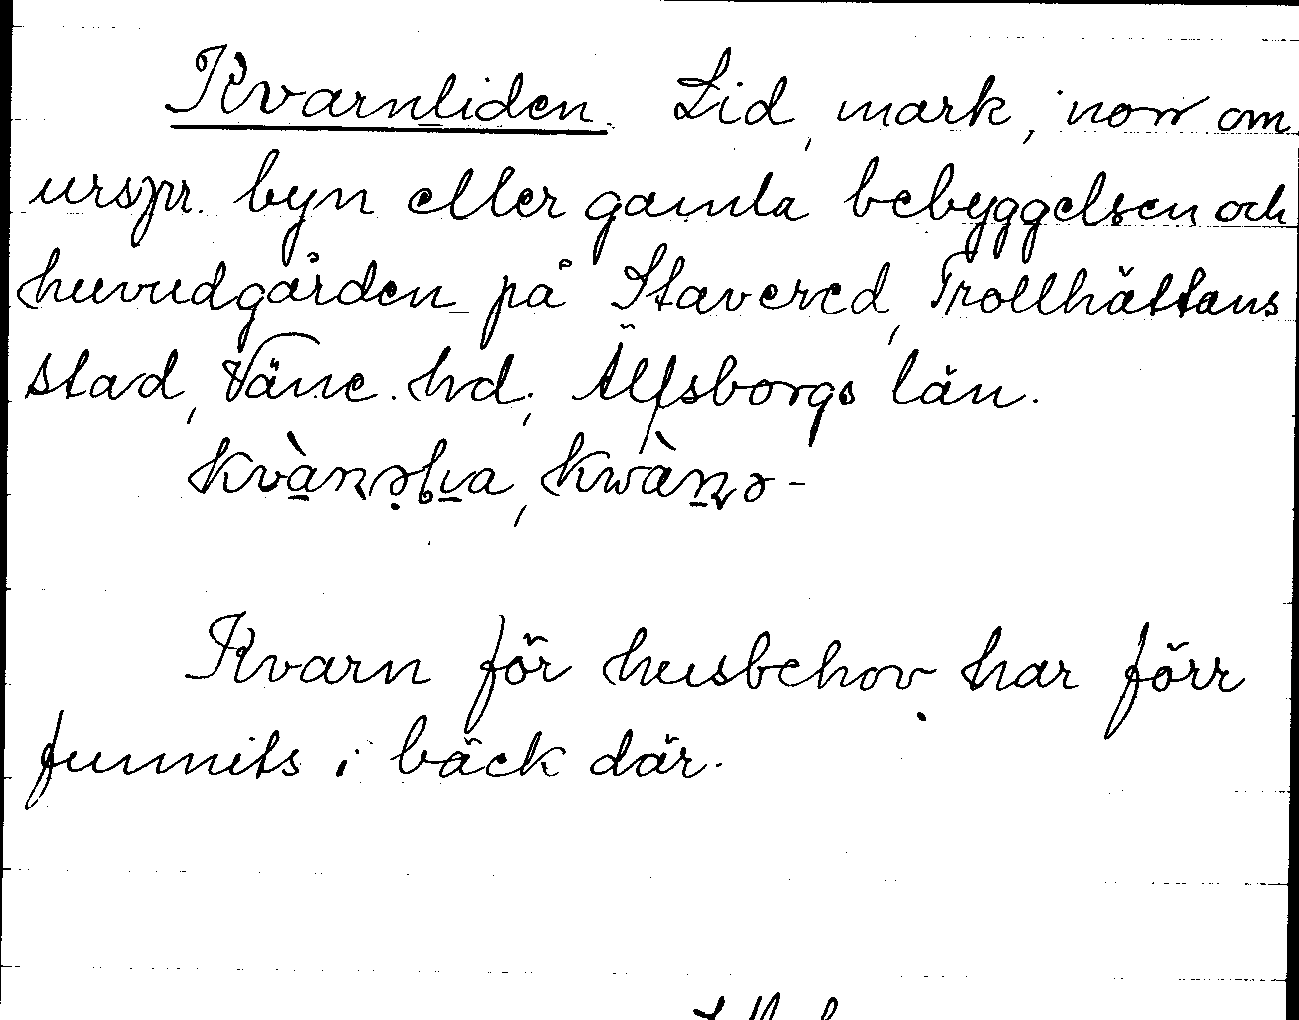 Kvarnliden. Lid, mark, norr om
urspr. byn eller gamla bebyggelsen och
huvudgården på Stavered, Trollhättans
stad, Väne hd, Älfsborgs län.
Kvarn för husbehov har förr
funnits i bäck där.